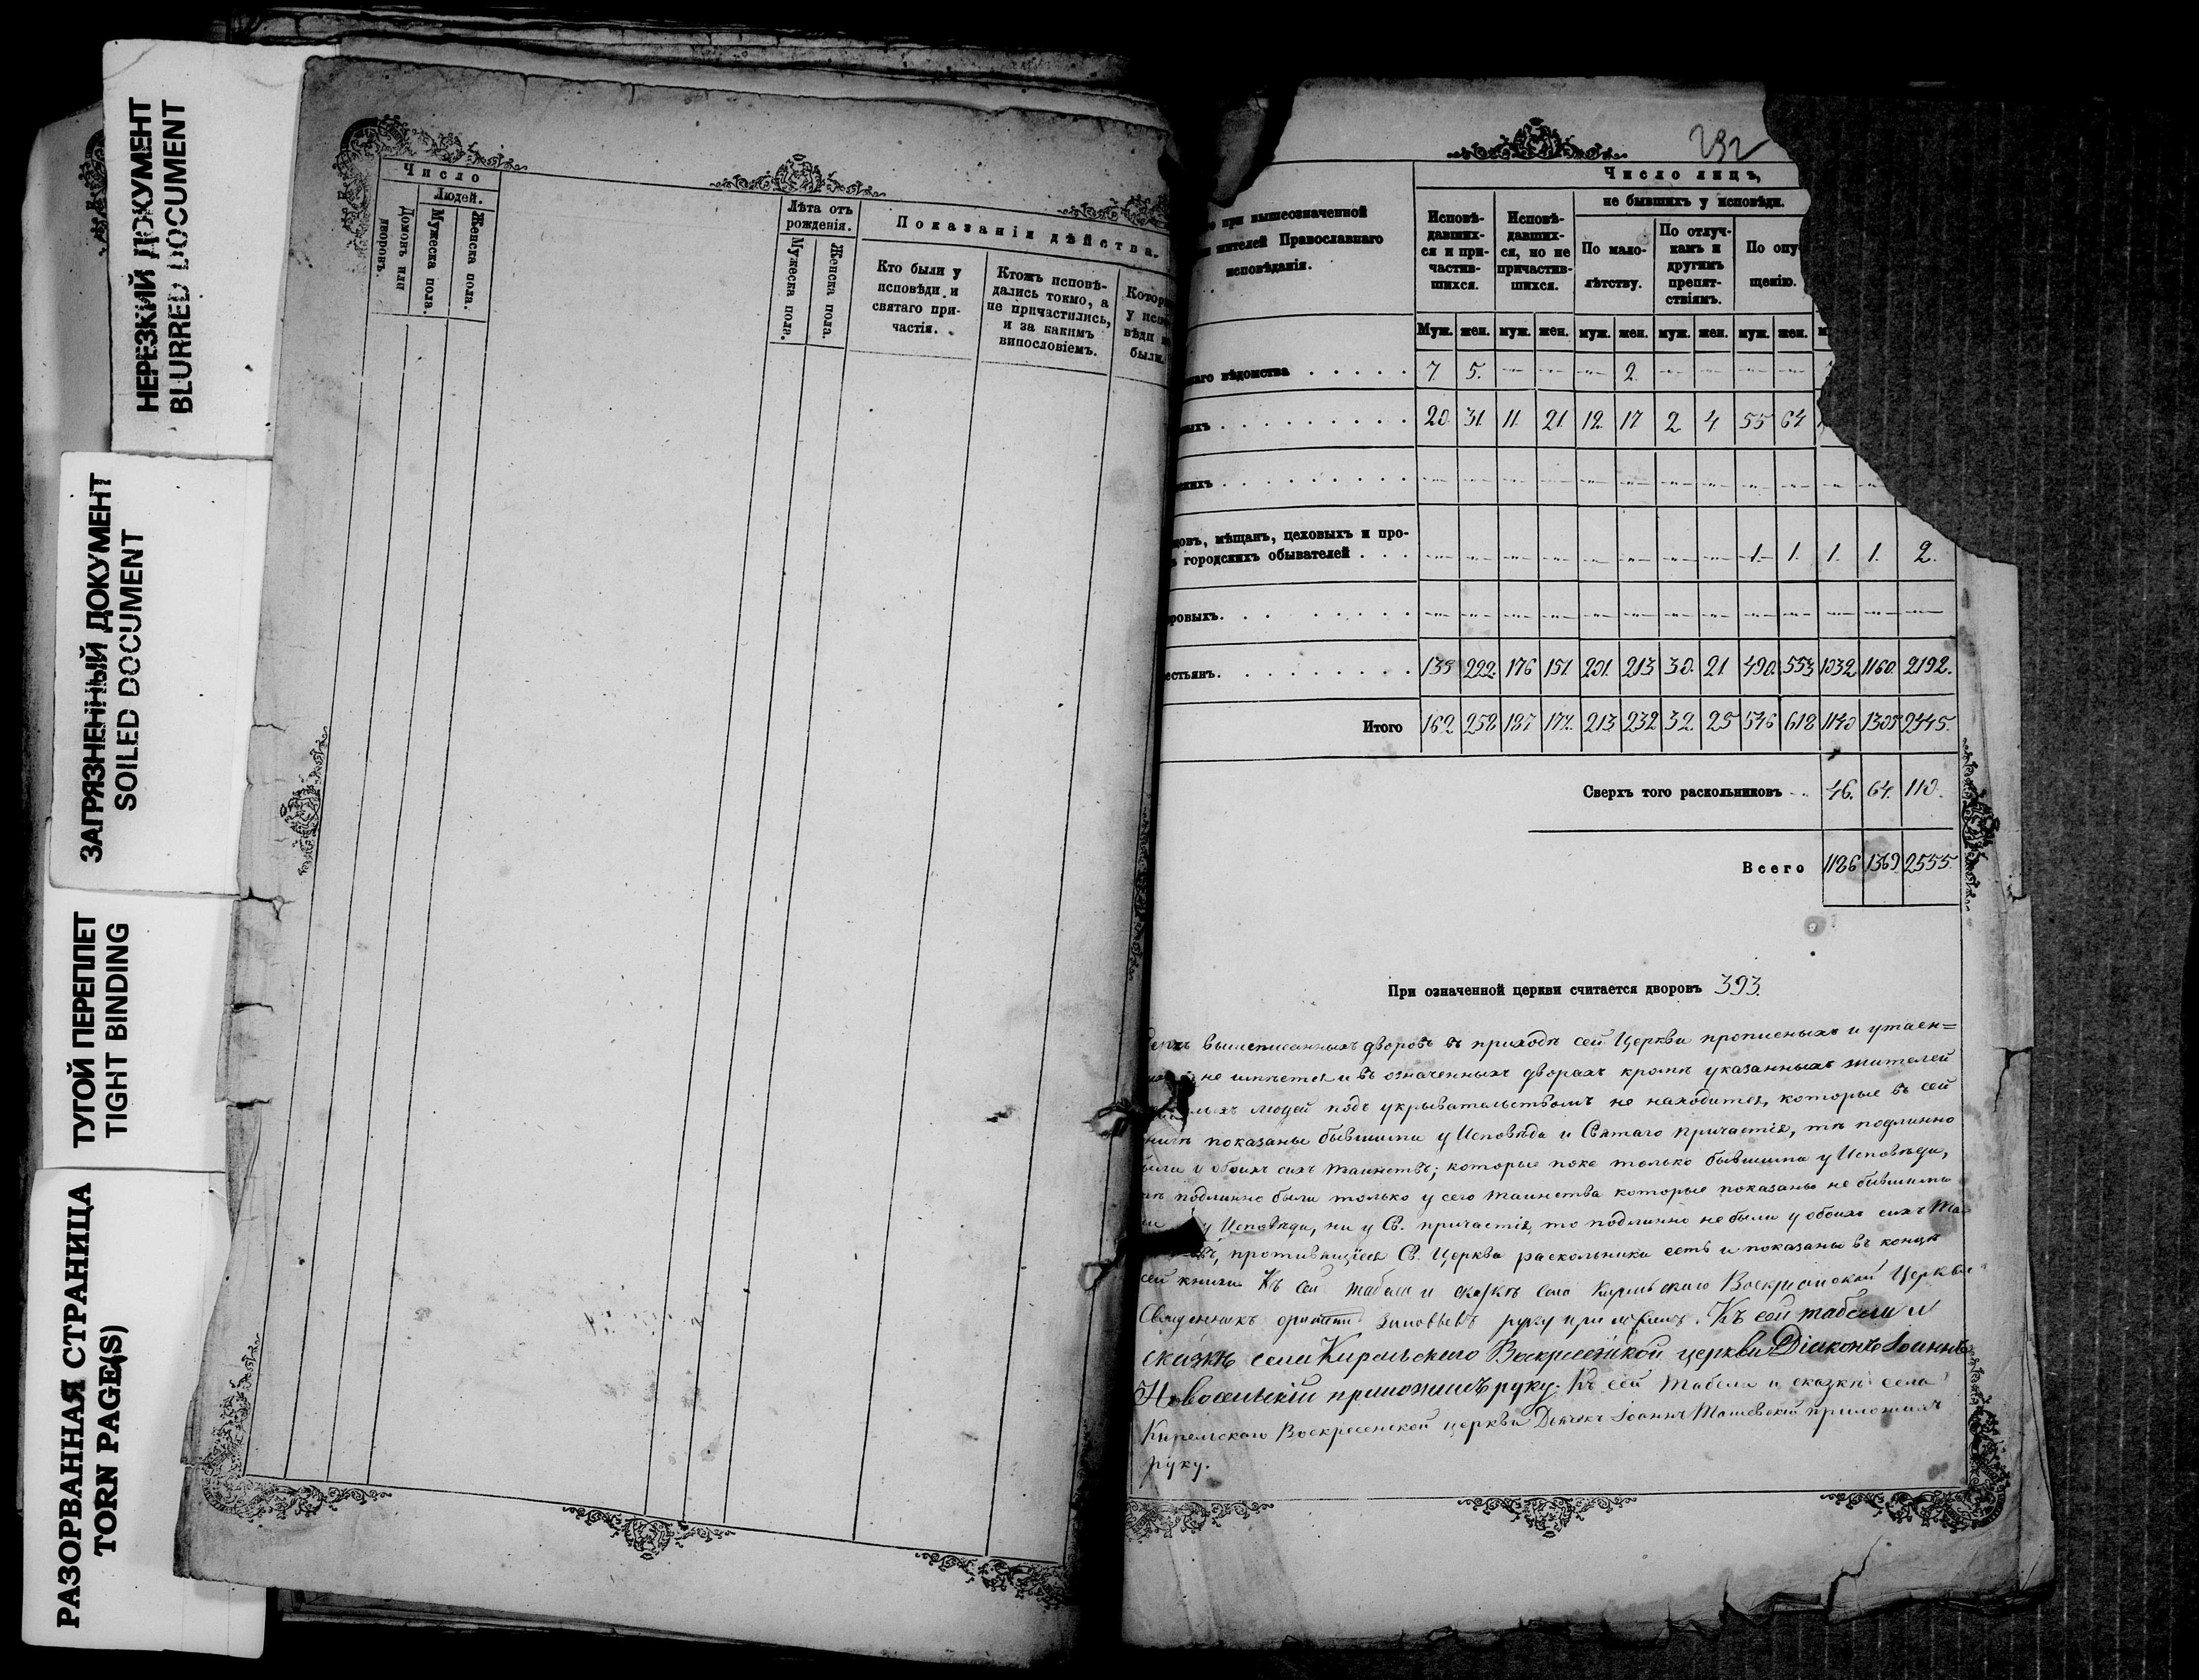 НЕРЕЗКИЙ ДОКУМЕНТ
BLURRED DOCUMENT
ЗАГРЯЗНЕННЫЙ ДОКУМЕНТ
SOILED DOCUMENT
ТУГОЙ ПЕРЕПЛЕТ
TIGHT BINDING
РАЗОРВАННАЯ СТРАНИЦА
TORN PAGE(S)
Число
Людей.
Домовъ или дворовъ.
Мужеска пола.
Женска пола.
Лѣта отъ рожденія.
Мужеска пола.
Женска пола.
Показанія дѣйства.
Кто были у исповѣди и святаго причастія.
Ктожъ исповѣдались токмо, а не причастились, и за какимъ винословіемъ.
были.
232
Число лицъ,
не бывшихъ у исповѣди.
при вышеозначенной
жителей Православнаго
исповѣданія.
Исповѣ-давших-ся и при-частив-шихся.
Исповѣ-давших-ся, но не причастив-шихся.
По мало-лѣтству.
По отлуч-камъ и другимъ препят-ствіямъ.
По опу щенію.
Муж. жен. муж. жен. муж. жен. муж. жен. муж. жен.
вѣдомства 7. 5. — — — 2. — — — —
20. 31. 11. 21. 12. 17 2. 4. 55 64
мѣщанъ, цеховыхъ и про-
городскихъ обывателей — — — — — — — — 1. 1. 1. 1. 2.
222. 176 151. 201. 213 30. 21. 490. 553 1032. 1160. 2192.
Итого 162 258 187 172. 213 232 32. 25 546 618 1140 1305 2445.
Сверхъ того раскольниковъ 46. 64. 110.
Всего 1186 1369. 2555.
При означенной церкви считается дворовъ 393.
вышеписанныхъ дворовъ въ приходѣ сей Церкви прописныхъ и утаен=
не имѣется и въ означенныхъ дворахъ кромѣ указанныхъ жителей
людей подъ укрывательствомъ не находится, которые въ сей
показаны бывшими у Исповѣди и Святаго Причастія, тѣ подлинно
были у обоихъ сихъ таинствъ; которые пока только бывшими у Исповѣди,
подлинно были только у сего таинства которые показаны не бывшими
у Исповѣди, ни у Св. причастія, то подлинно не были у обоихъ сихъ Та
противящіеся Св. Церкви раскольники есть и показаны въ концѣ
сей книги Къ сей табели и сказкѣ села Воскресенской Церкви
Священникъ руку приложилъ. Къ сей табели и
сказкѣ села Кирельскаго Воскресенской церкви Діаконъ Іоаннъ
Новосельскій приложилъ руку. Къ сей табели и сказкѣ села
Кирельскаго Воскресенской церкви Дьячекъ Іоаннъ приложилъ
руку.